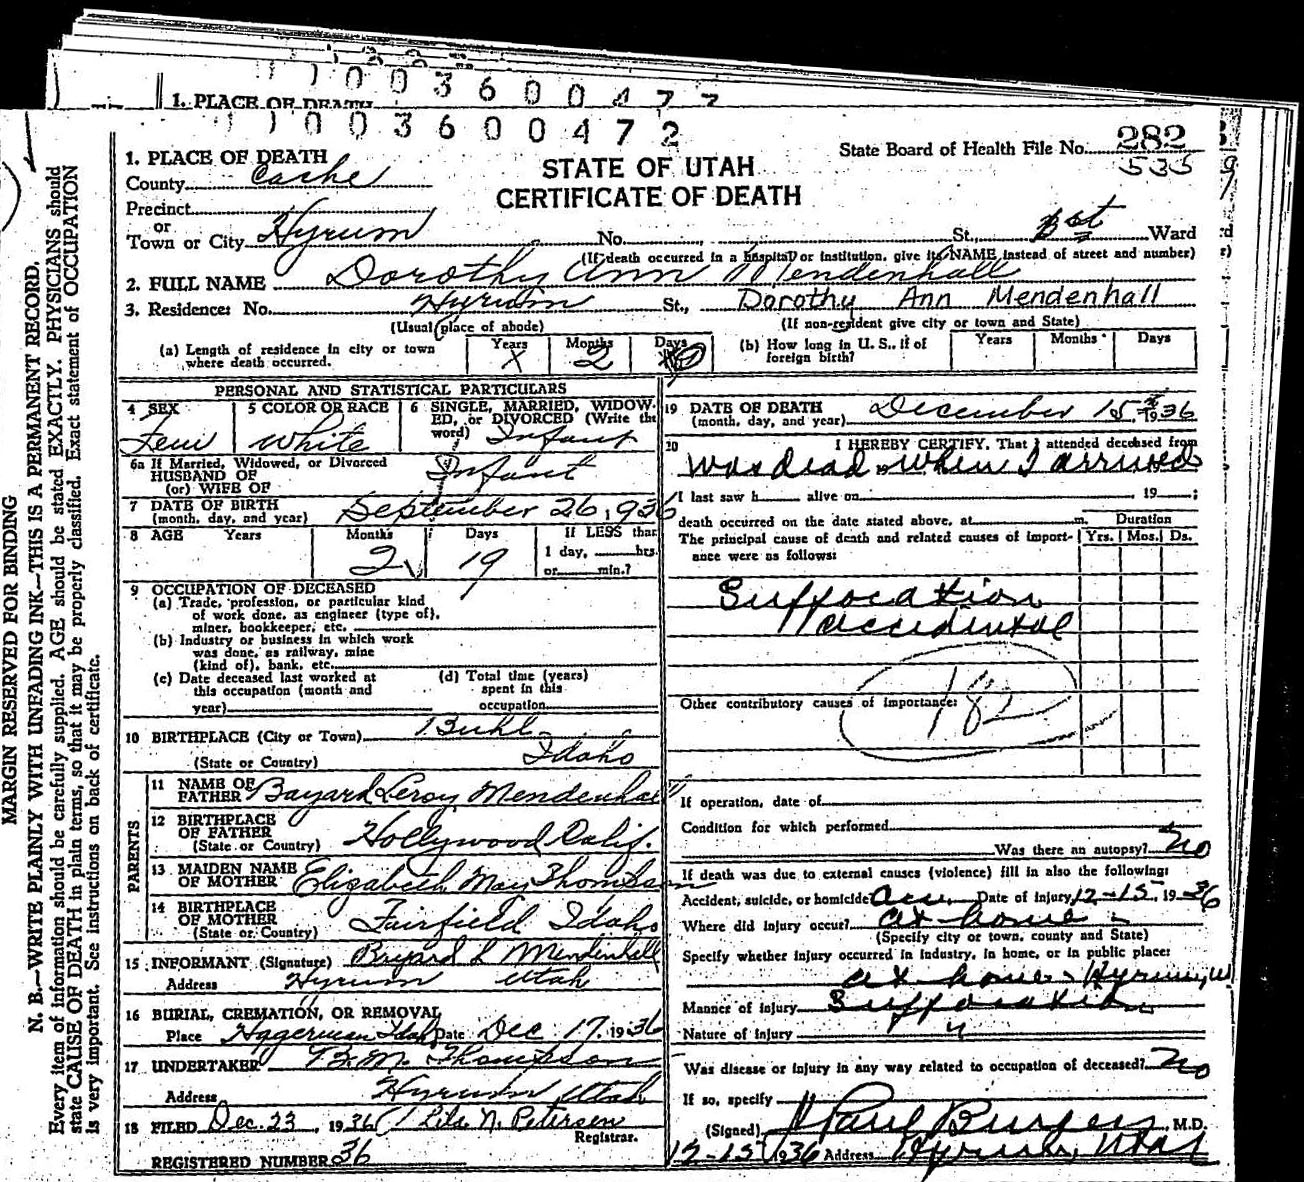 1. PLACE OF DEATH
1 1 0 0 3 6 0 0 4 7 2
MARGIN RESERVED FOR BINDING
N. B.—WRITE PLAINLY WITH UNFADING INK—THIS IS A PERMANENT RECORD.
Every item of information should be carefully supplied. AGE should be stated EXACTLY. PHYSICIANS should
state CAUSE OF DEATH in plain terms, so that it may be properly classified. Exact statement of OCCUPATION
is very important. See instructions on back of certificate.
State Board of Health File No. 282
535
STATE OF UTAH
CERTIFICATE OF DEATH
1. PLACE OF DEATH
County Cache
Precinct
or
Town or City Hyrum No. St., 1st Ward
(If death occurred in a hospital or institution, give its NAME instead of street and number)
2. FULL NAME Dorothy Ann Mendenhall
3. Residence: No. Hyrum St., Dorothy Ann Mendenhall
(Usual place of abode) (If non-resident give city or town and State)
(a) Length of residence in city or town where death occurred. Years X Months 2 Days
(b) How long in U. S., if of foreign birth? Years Months Days
PERSONAL AND STATISTICAL PARTICULARS
4 SEX Fem
5 COLOR OR RACE White
6 SINGLE, MARRIED, WIDOWED, or DIVORCED (Write the word) Infant
6a If Married, Widowed, or Divorced
HUSBAND OF
(or) WIFE OF Infant
7 DATE OF BIRTH
(month, day, and year) September 26, 1936
8 AGE Years Months 2 Days 19 If LESS than
1 day, hrs.
or min.?
9 OCCUPATION OF DECEASED
(a) Trade, profession, or particular kind
of work done, as engineer (type of),
miner, bookkeeper, etc.
(b) Industry or business in which work
was done, as railway, mine
(kind of), bank, etc.
(c) Date deceased last worked at
this occupation (month and
year)
(d) Total time (years)
spent in this
occupation
10 BIRTHPLACE (City or Town) Buhl
(State or Country) Idaho
PARENTS
11 NAME OF FATHER Bayard Leroy Mendenhall
12 BIRTHPLACE OF FATHER
(State or Country) Hollywood Calif.
13 MAIDEN NAME OF MOTHER Elizabeth May Thompson
14 BIRTHPLACE OF MOTHER
(State or Country) Fairfield Idaho
15 INFORMANT (Signature) Bayard L Mendenhall
Address Hyrum Utah
16 BURIAL, CREMATION, OR REMOVAL
Place Hagerman Idah Date Dec 17, 1936
17 UNDERTAKER M. Thompson
Address Hyrum Utah
18 FILED Dec. 23, 1936 Lile N. Petersen
Registrar.
REGISTERED NUMBER 36
19 DATE OF DEATH
(month, day, and year) December 15, 1936
20 I HEREBY CERTIFY, That I attended deceased from
was dead when I arrived
I last saw h alive on 19 ;
death occurred on the date stated above, at m.
The principal cause of death and related causes of importance were as follows:
Duration
Yrs. Mos. Ds.
Suffocation
accidental
182
Other contributory causes of importance:
If operation, date of
Condition for which performed
Was there an autopsy? No
If death was due to external causes (violence) fill in also the following:
Accident, suicide, or homicide Acc. Date of injury 12-15, 1936
Where did injury occur? at home
(Specify city or town, county and State)
Specify whether injury occurred in industry, in home, or in public place:
at home - Hyrum, U
Manner of injury Suffocation
Nature of injury "
Was disease or injury in any way related to occupation of deceased? No
If so, specify
(Signed) Paul Burgess, M.D.
12-15 1936 Address Hyrum, Utah